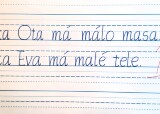 Ota má málo masa.
Eva má malé tele.